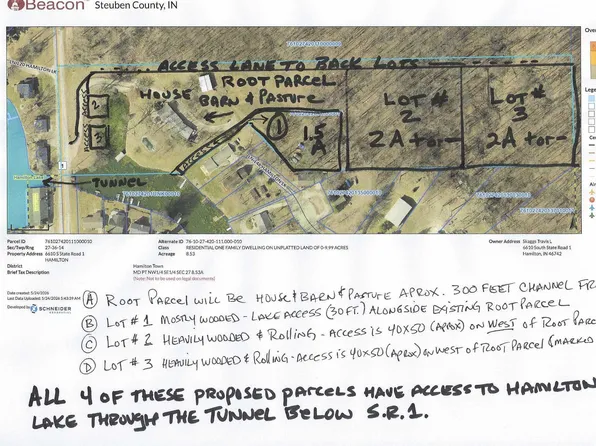 Beacon™ Steuben County, IN
Over
Lege
ACCESS LANE TO BACK LOTS
ROOT PARCEL
HOUSE BARN & PASTURE
ACCESS ACCESS
2
3
1
1.5
A
LOT #
2
2A +or-
LOT #
3
2A +or-
TUNNEL
Parcel ID 761027420111000010
Sec/Twp/Rng 27-36-14
Property Address 6610 S State Road 1
HAMILTON
Alternate ID 76-10-27-420-111.000-010
Class RESIDENTIAL ONE FAMILY DWELLING ON UNPLATTED LAND OF 0-9.99 ACRES
Acreage 8.53
Owner Address Skaggs Travis L
6610 South State Road 1
Hamilton, IN 46742
District Hamilton Town
Brief Tax Description
(Note: Not to be used on legal documents)
Date created: 5/24/2026
Developed by SCHNEIDER
A ROOT PARCEL WILL BE HOUSE & BARN & PASTURE APROX. 300 FEET CHANNEL FR
B LOT # 1 MOSTLY WOODED - LAKE ACCESS (30FT.) ALONGSIDE EXISTING ROOT PARCEL
C LOT # 2 HEAVILY WOODED & ROLLING - ACCESS IS 40X50 (APROX) ON WEST OF ROOT PAR
D LOT # 3 HEAVILY WOODED & ROLLING - ACCESS IS 40X50 (APROX) ON WEST OF ROOT PARCEL (MARKED
ALL 4 OF THESE PROPOSED PARCELS HAVE ACCESS TO HAMILTON
LAKE THROUGH THE TUNNEL BELOW S.R.1.